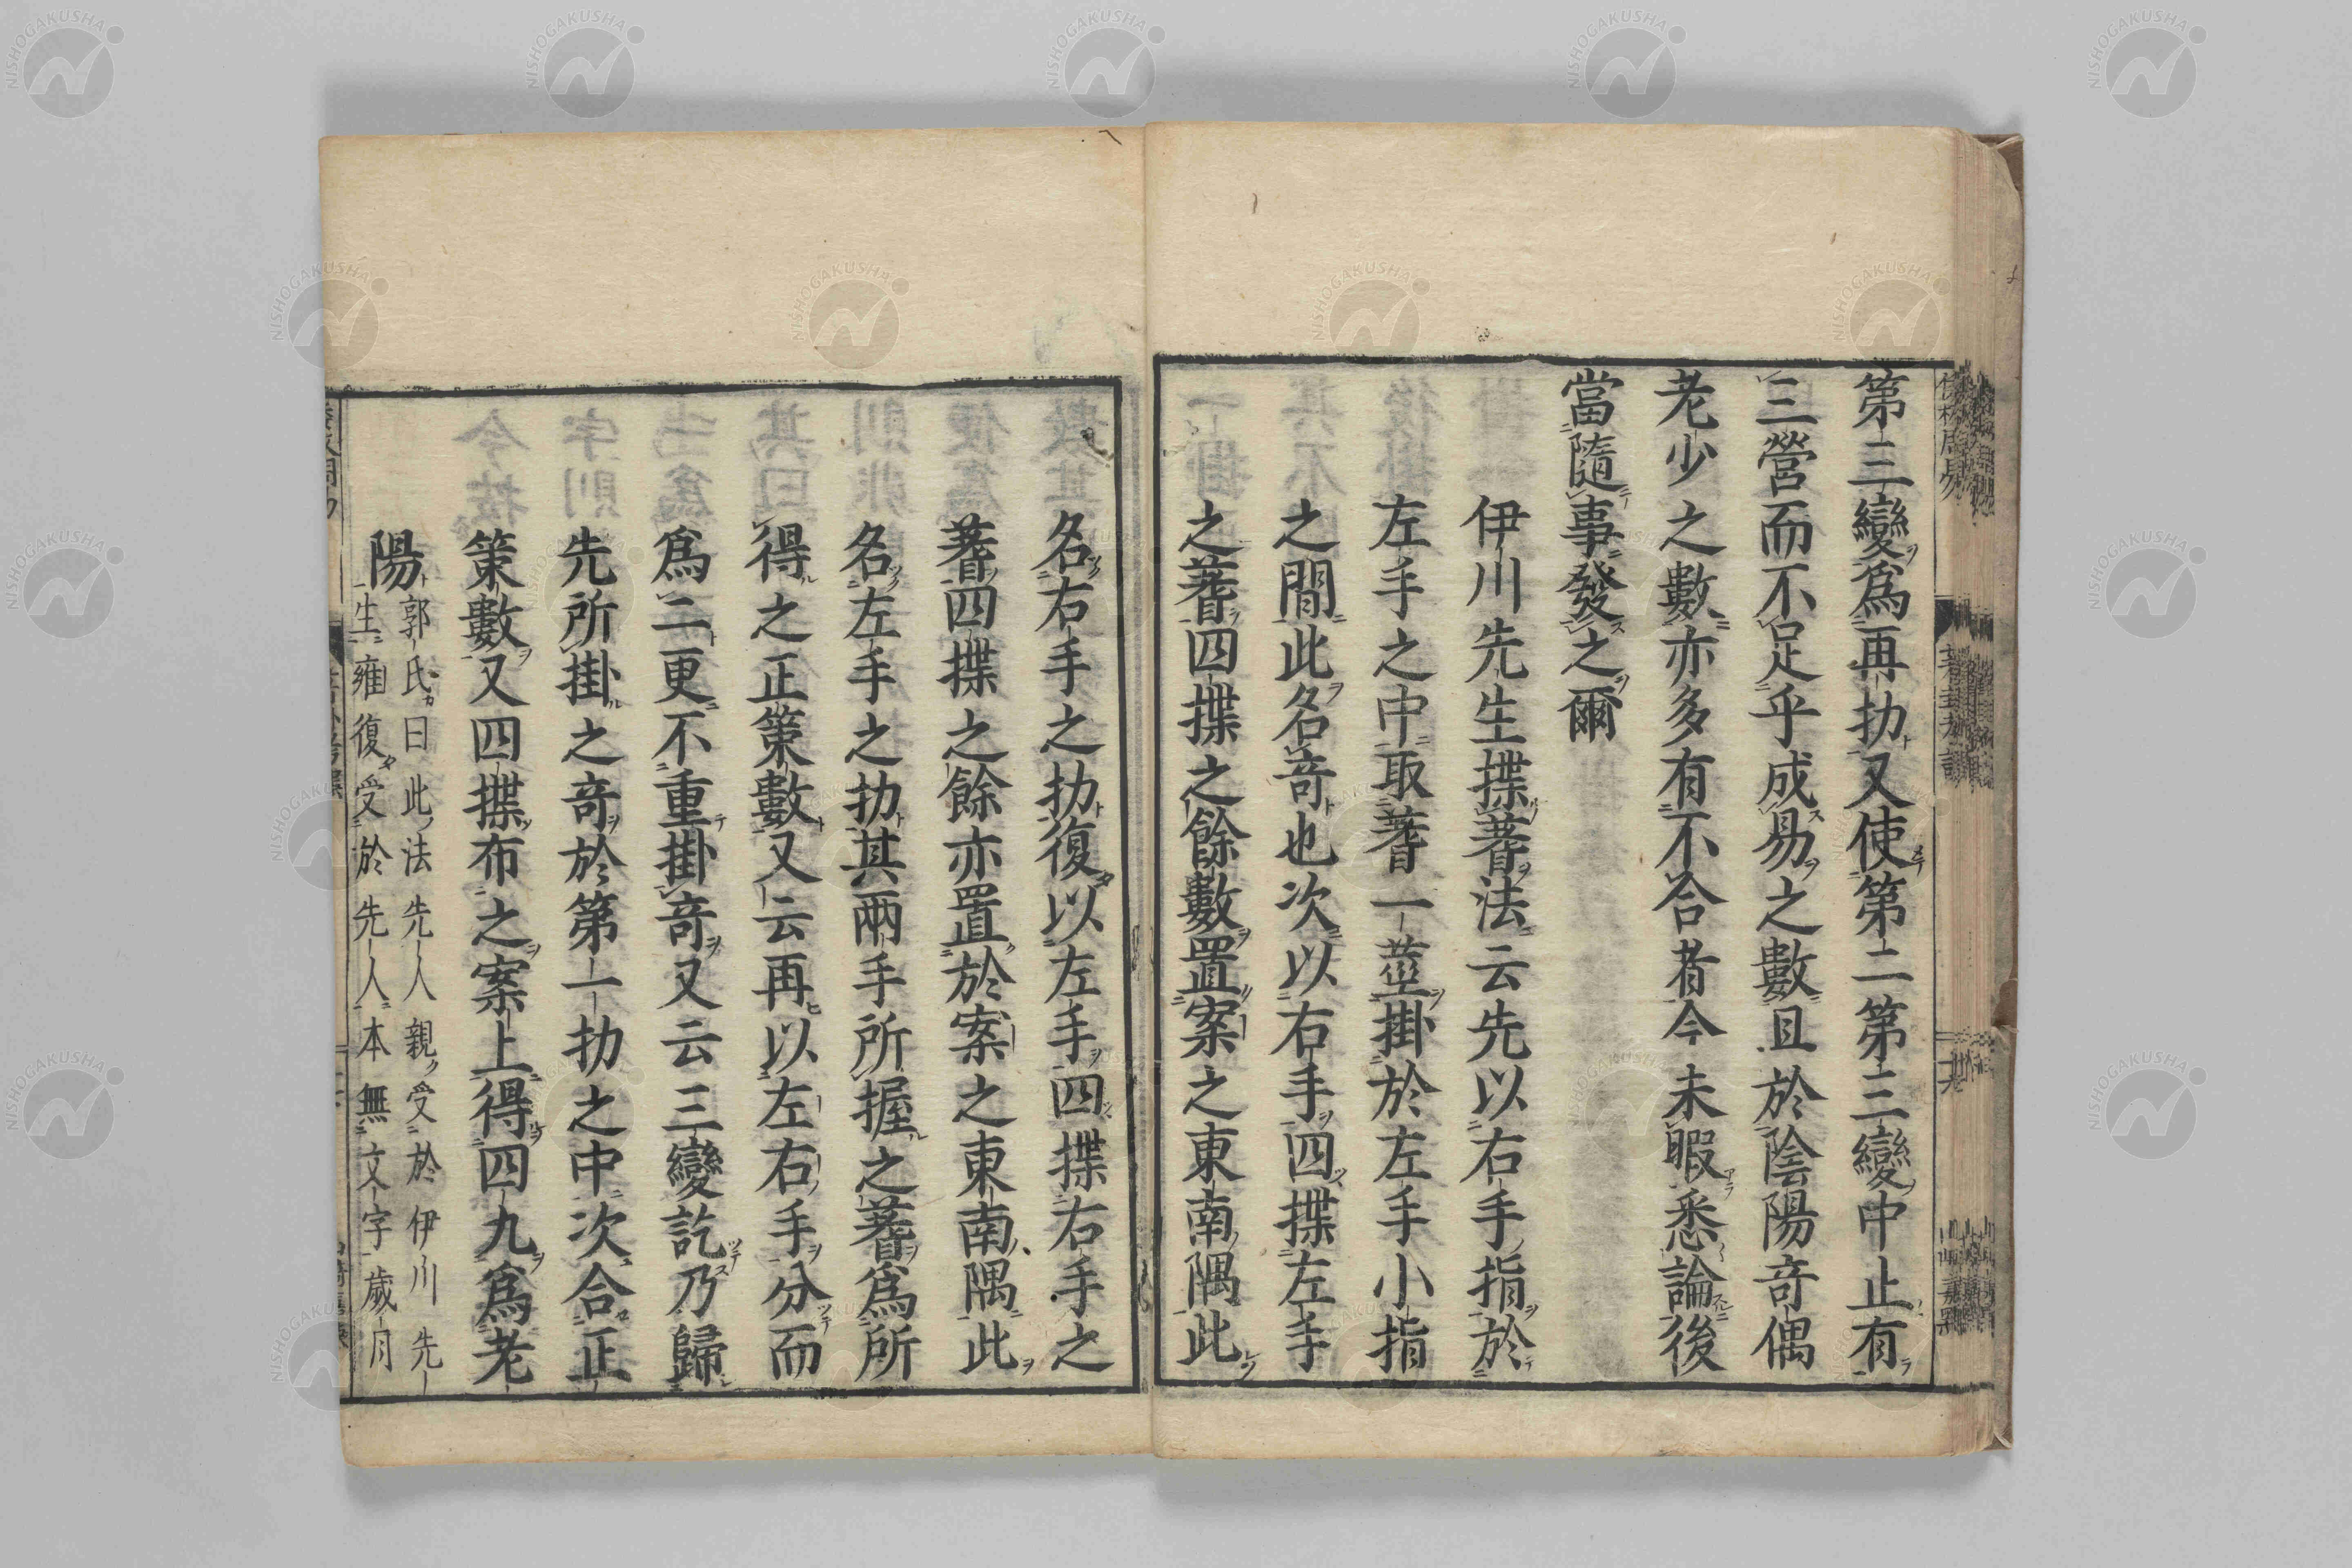 第三變爲再扐又使第二第三變中止有
三營而不足乎成易之數且於陰陽竒偶
老少之數亦多有不合者今未暇悉論後
當隨事發之爾
伊川先生揲蓍法云先以右手指於
左手之中取蓍一莖掛於左手小指
之間此名竒也次以右手四揲左手
之蓍四揲之餘數置案之東南隅此
名右手之扐復以左手四揲右手之
蓍四揲之餘亦置於案之東南隅此
名左手之扐其兩手所握之蓍爲所
得之正策數又云再以左右手分而
爲二更不重掛竒又云三變訖乃歸
先所掛之竒於第一扐之中次合正
策數又四揲布之案上得四九爲老
陽郭氏曰此法先人親受於伊川先
生雍復受於先人本無文字歲月
NISHOGAKUSHA